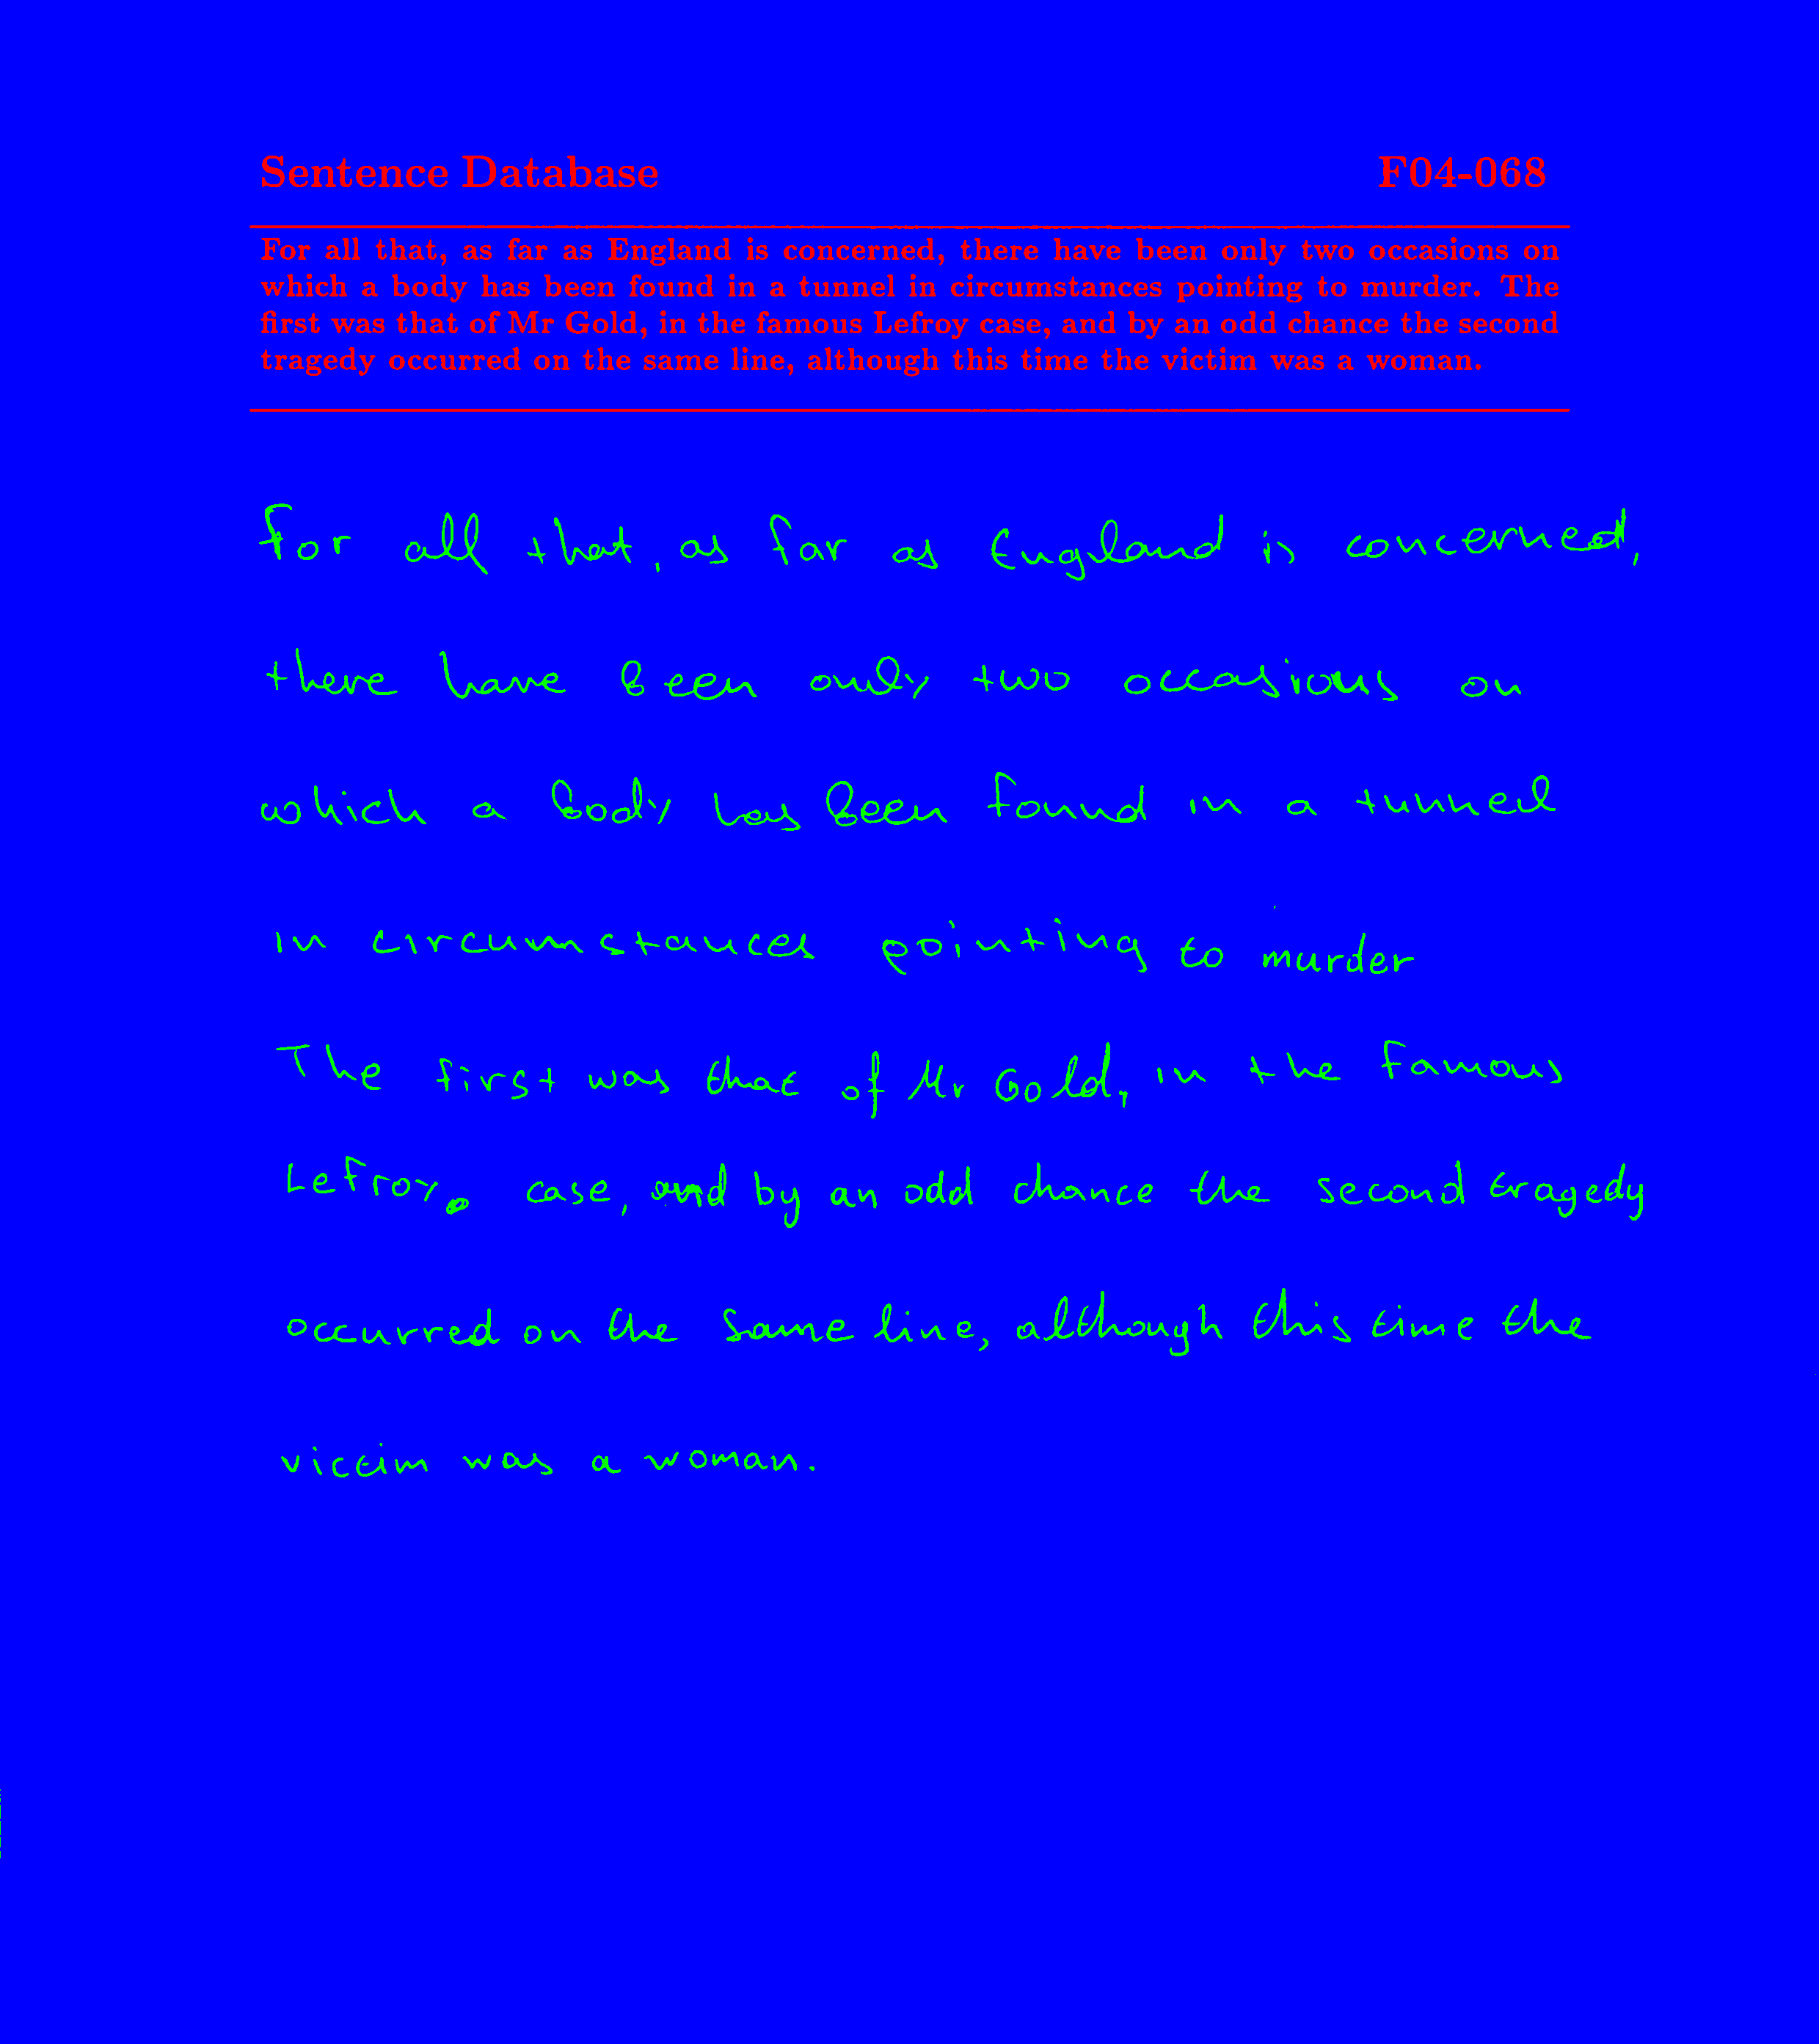 Sentence Database F04-068
For all that, as far as England is concerned, there have been only two occasions on
which a body has been found in a tunnel in circumstances pointing to murder. The
first was that of Mr Gold, in the famous Lefroy case, and by an odd chance the second
tragedy occurred on the same line, although this time the victim was a woman.
For all that, as far as England is concerned,
there have been only two occasions on
which a body has been found in a tunnel
in circumstances pointing to murder
The first was that of Mr Gold, in the famous
Lefroy. case, and by an odd chance the second tragedy
occurred on the same line, although this time the
victim was a woman.